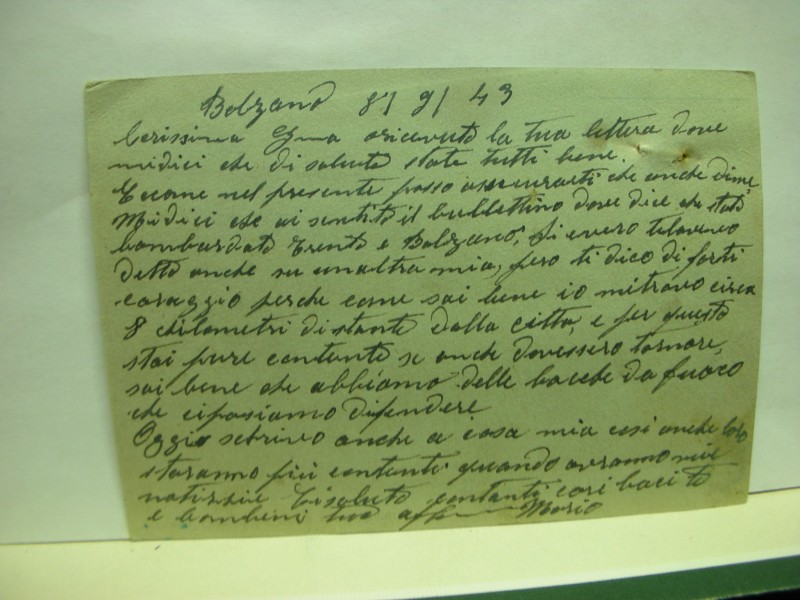 Bolzano 8/9/43
Carissima ricevuto la tua lettera dove
midici che di salute state tutti bene.
E come nel presente posso assicurarti che anche dime
Midici che ai sentito il bullettino dove dice che stato
bombardato Trento e Bolzano, Si evero telavevo
detto anche su unaltra mia, pero ti dico di farti
coraggio perche come sai bene io mitrovo circa
8 chilometri distante dalla citta, e per questo
stai pure contenta se anche dovessero tornare,
sai bene che abbiamo delle bocche da fuoco
che ciposiamo difendere
Oggi scrivo anche a casa mia cosi anche loro
staranno piu contenti quando avranno mie
notizzie Tisaluto contanti cari baci te
e bambini tuo aff Mario